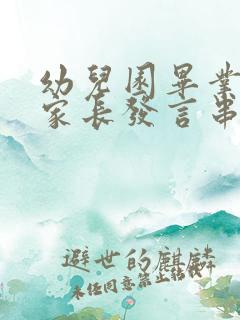 幼兒園畢業
家長發言串
避世的麒麟
未經同意禁止轉載